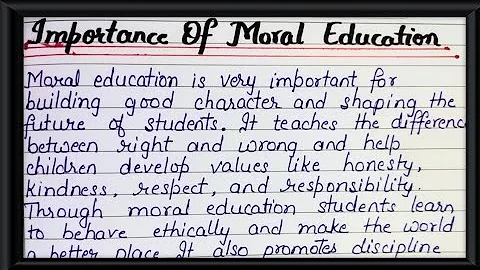 Importance Of Moral Education.
Moral education is very important for
building good character and shaping the
future of students. It teaches the difference
between right and wrong and help
children develop values like honesty,
kindness, respect, and responsibility.
Through moral education students learn
to behave ethically and make the world
a better place It also promotes discipline